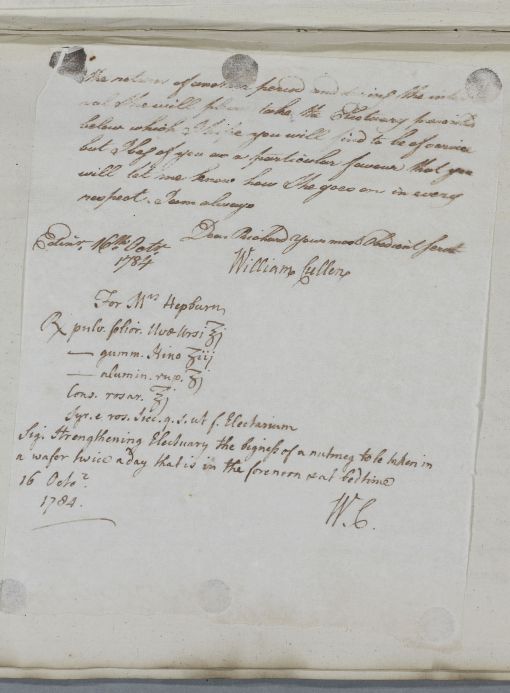 the return of another period and during the inter
val She will please take the Electuary prescribd
below which I hope you will find to be of service
but I beg of you as a particular favour that you
will let me know how She goes on in every
respect. I am always
Dear Richard Your most Obedient Servt
Edinr. 16th Octr.
1784
William Cullen
For Mrs Hepburn
℞ pulv. folior. Uvæ Ursi ʒj
— gumm. Kino ʒiij
— alumin. rup. ʒj
Cons. rosar. ℥j
Syr. e ros. sicc. q. s. ut f. Electarium
Sig. Strengthening Electuary the bigness of a nutmeg to be taken in
a wafor twice a day that is in the forenoon & at bedtime
16 Octor
1784.
W. C.